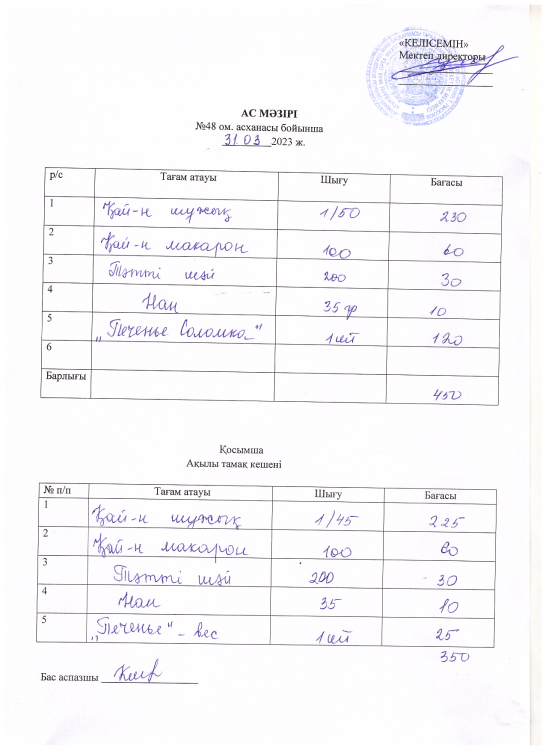 «КЕЛІСЕМІН»
Мектеп директоры
АС МӘЗІРІ
№48 ом. асханасы бойынша
31.03 2023 ж.
р/с Тағам атауы Шығу Бағасы
1 Қай-н шұжық 1/50 230
2 Қай-н макарон 100 60
3 Тәтті шәй 200 30
4 Нан 35 гр 10
5 „Печенье Соломка" 1 шт 120
6
Барлығы 450
Қосымша
Ақылы тамақ кешені
№ п/п Тағам атауы Шығу Бағасы
1 Қай-н шұжық 1/45 225
2 Қай-н макарон 100 60
3 Тәтті шәй 200 30
4 Нан 35 10
5 „Печенье" - вес 1 шт 25
350
Бас аспазшы